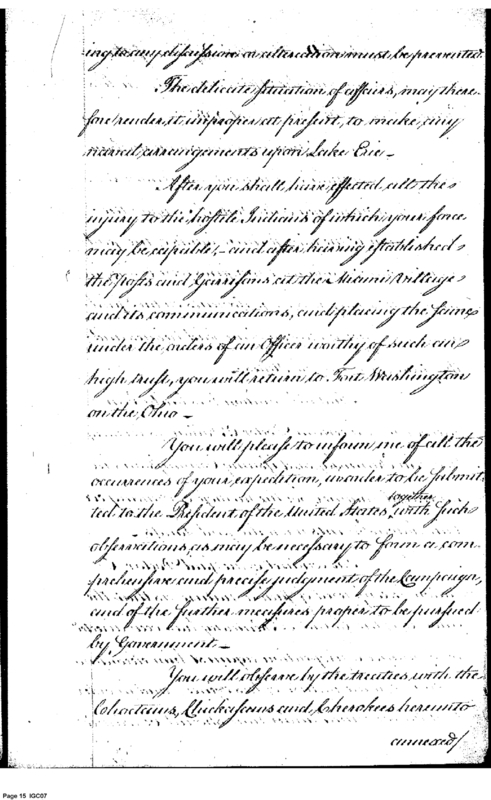 ing to any discussion or altercation must be prevented.
The delicate situation of affairs, may there-
fore, render it improper at present, to make, any
naval arrangements upon Lake Erie —
After you shall have effected all the
injury to the hostile Indians of which your force
may be capable, — and after having established
the Posts and Garrisons at the Miami Village
and its communications, and placing the same
under the orders of an Officer worthy of such an
high trust, you will return to Fort Washington
on the Ohio —
You will please to inform me of all the
occurrences of your expedition, in order to be submit
together
ted to the President of the United States, with such
observations as may be necessary to form a com
prehensive and precise judgment of the Campaign,
and of the further measures proper to be pursued
by Government. —
You will observe by the treaties with the
Choctaws, Chickasaws and Cherokees hereunto
annexed/
Page 15 IGC07